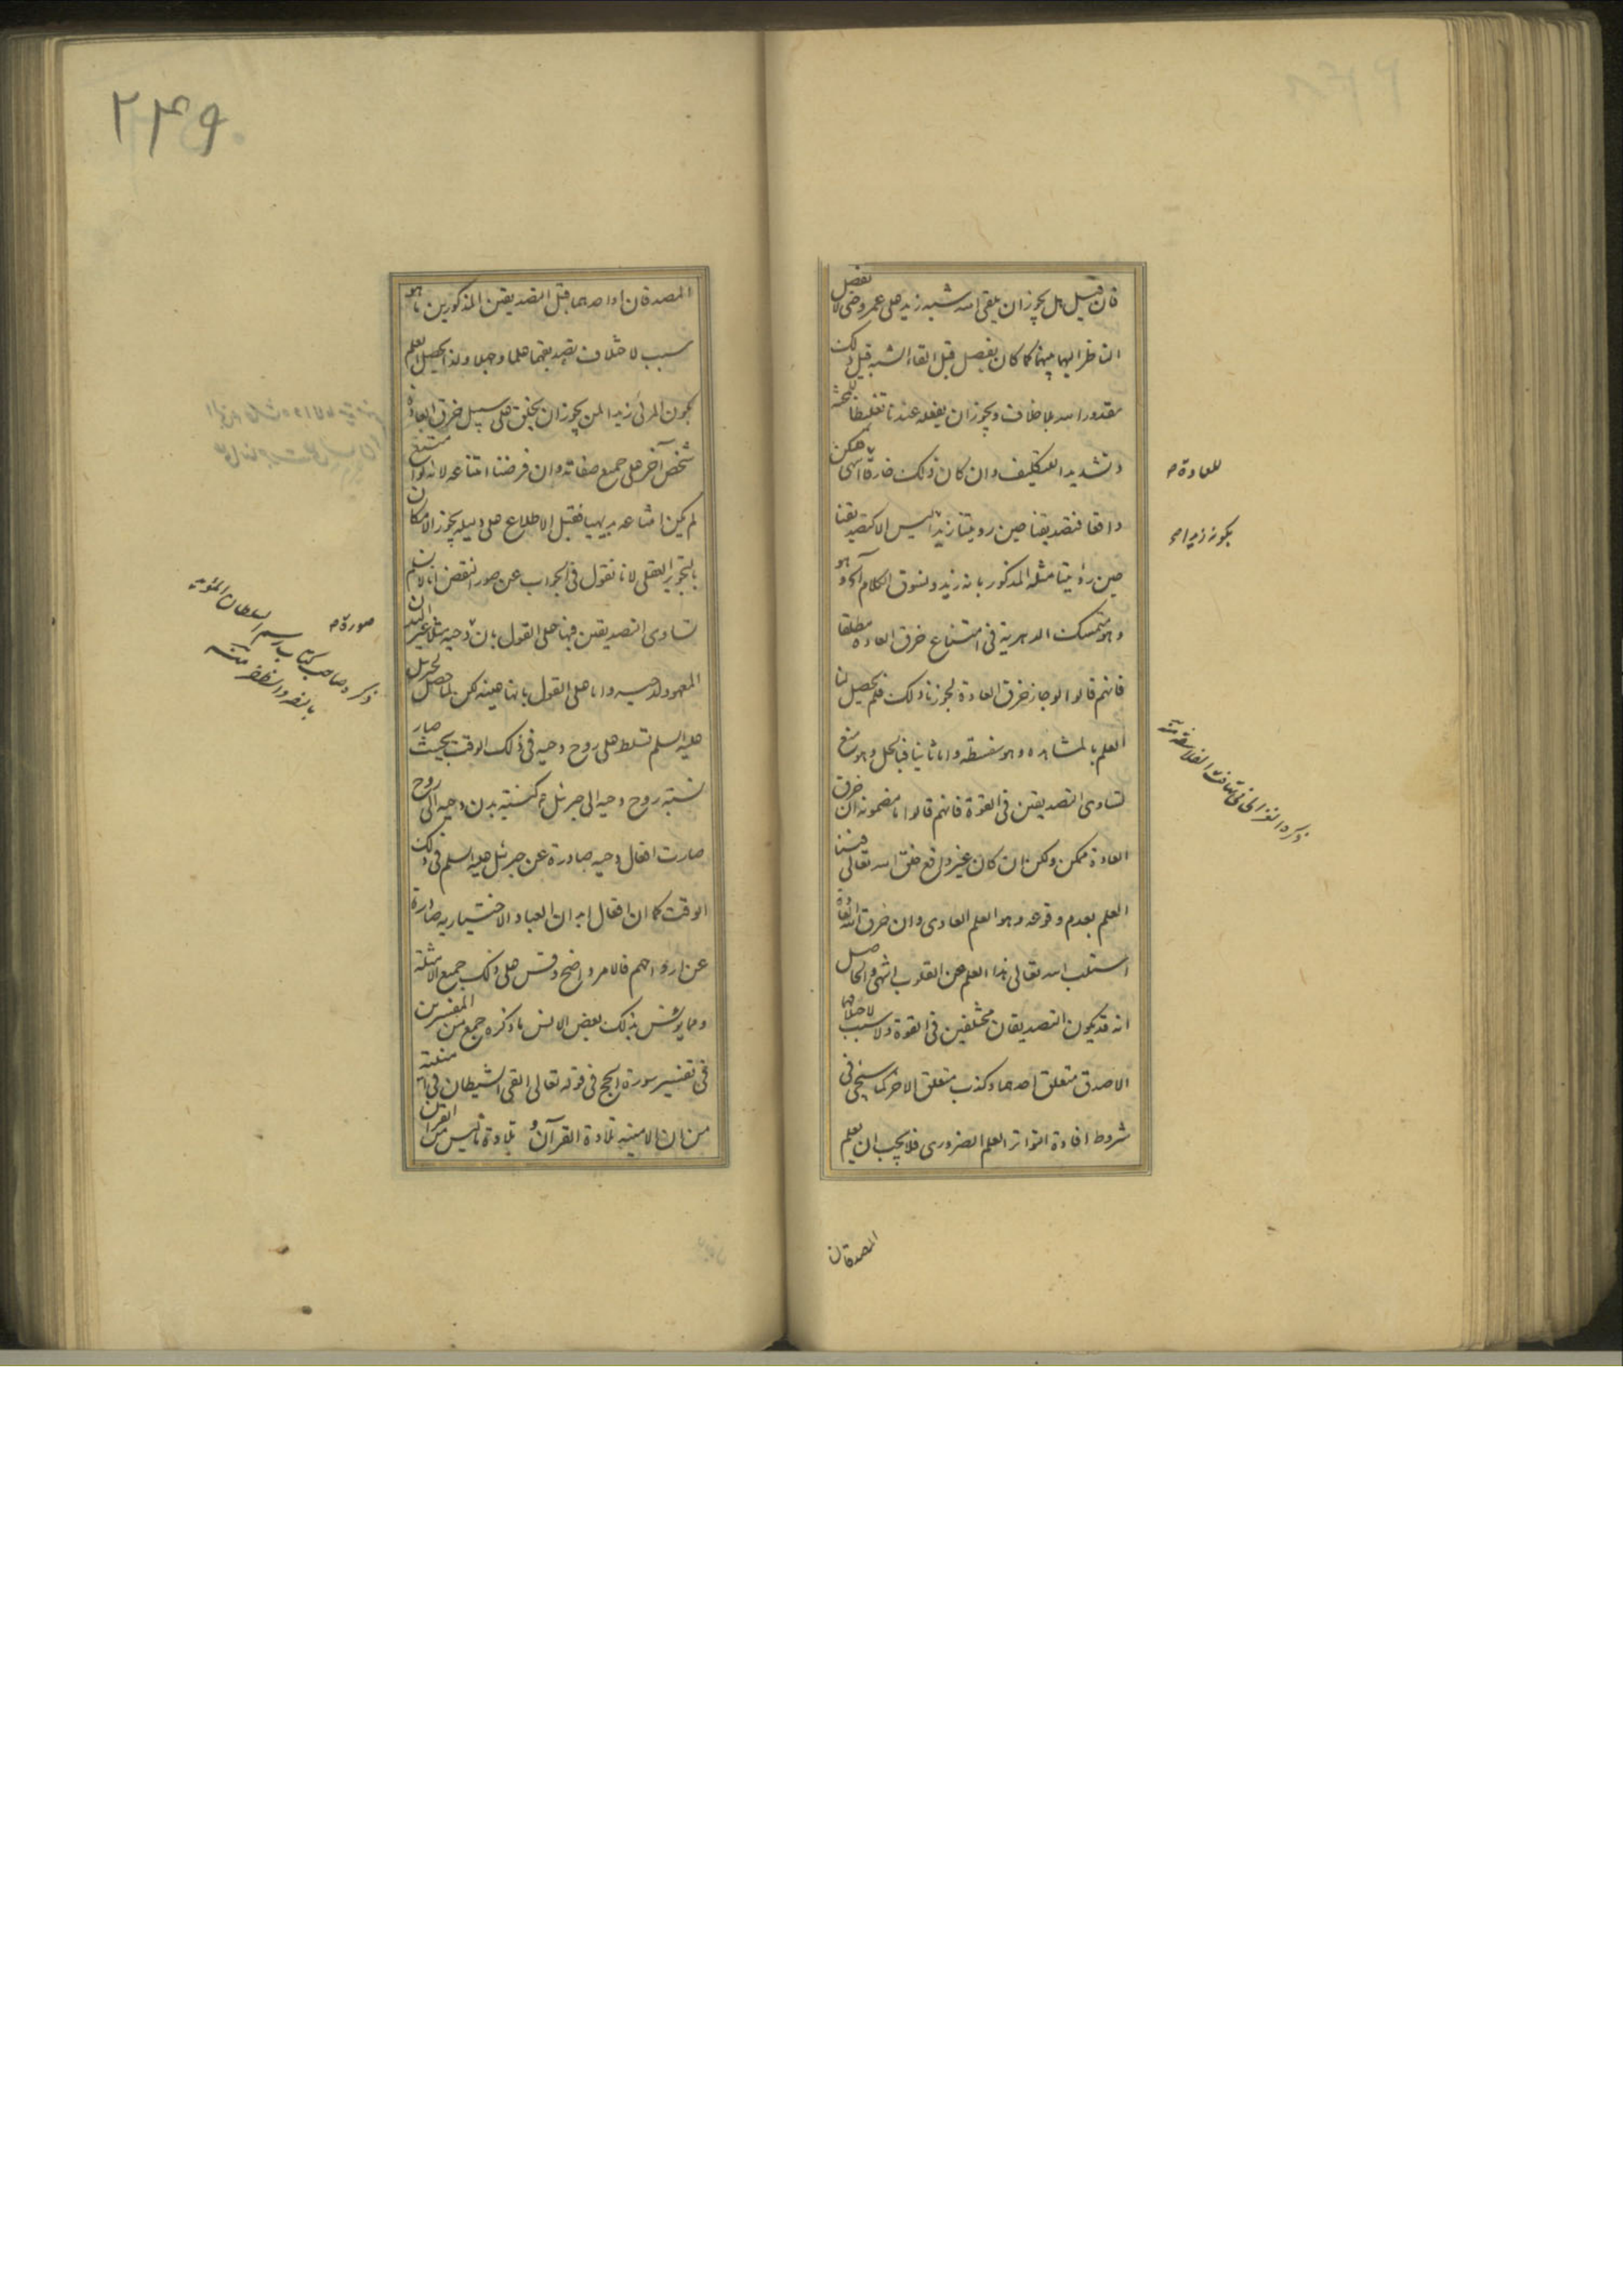 فان قيل هل يجوز ان يلقى الله شبه زيد على عمرو حتى لا يفصل
الناظر اليهما بينهما كما كان يفصل قبل القاء الشبه قيل ذلك
مقدور الله بلا خلاف ويجوز ان يفعله عندنا تغليظا للمحنة
وتشديدا للتكليف وان كان ذلك خارقا
للعادة
واقعا فتصديقنا حين رويتنا زيدا ليس الا كتصديقنا
بكونه زيدا
حين رؤيتنا مثله المذكور بانه زيد ونسوق الكلام
وهو متمسك الدهرية فى امتناع خرق العادة مطلقا
فانهم قالوا لو جاز خرق العادة لجوزنا ذلك فلم يحصل لنا
العلم بالمشاهدة وهو سفسطة واما ثانيا فبالحل وهو منع
ذكره الغزالى فى تهافت الفلاسفة منه
تساوى التصديقين فى القوة فانهم قالوا ما مضمونه ان خرق
العادة ممكن ولكن ان كان غير واقع خلق الله تعالى فينا
العلم بعدم وقوعه وهو العلم العادى وان خرق الله العادة
استلب الله تعالى هذا العلم عن القلوب انتهى والحاصل
انه قد يكون التصديقان مختلفين فى القوة ولا سبب لاختلافهما
الا صدق متعلق احدهما وكذب متعلق الاخر كما سيجئ فى
شروط افادة التواتر العلم الضرورى فلا يجب ان يعلم
المصدقان
٢٤٩
المصدقان او احدهما قبل التصديقين المذكورين ما هو
سبب لاختلاف تصديقهما علما وجهلا ولذا يحصل العلم
بكون المرئى زيدا لمن يجوز ان يخلق على سبيل خرق العادة
شخص آخر على جميع صفاته وان فرضنا امتناعه لانه لو
لم يكن امتناعه بديهيا فقبل الاطلاع على دليله يجوز الامكان
بالتجويز العقلى لانا نقول فى الجواب عن صور النقض انا لا نسلم
تساوى التصديقين فيها على القول بان دحية مثلا غير
صورة
ذكره صاحب كتاب رسم السلطان المؤيد
بالنصر والظفر منه
المعهود لدحية واما على القول بانها عينه لكن لما حصل لجبرئيل
عليه السلم تسلط على روح دحية فى ذلك الوقت بحيث صار
نسبة روح دحية الى جبرئيل كنسبة بدن دحية الى روح
صارت افعال دحية صادرة عن جبرئيل عليه السلم فى ذلك
الوقت كما ان افعال ابدان العباد الاختيارية صادرة
عن ارواحهم فالامر واضح وقس على ذلك جميع الامثلة
ومما يؤنس بذلك بعض الانس ما ذكره جمع من المفسرين
فى تفسير سورة الحج فى قوله تعالى القى الشيطان فى امنيته
من ان الامنية تلاوة القرآن و تلاوة ما ليس من القرآن